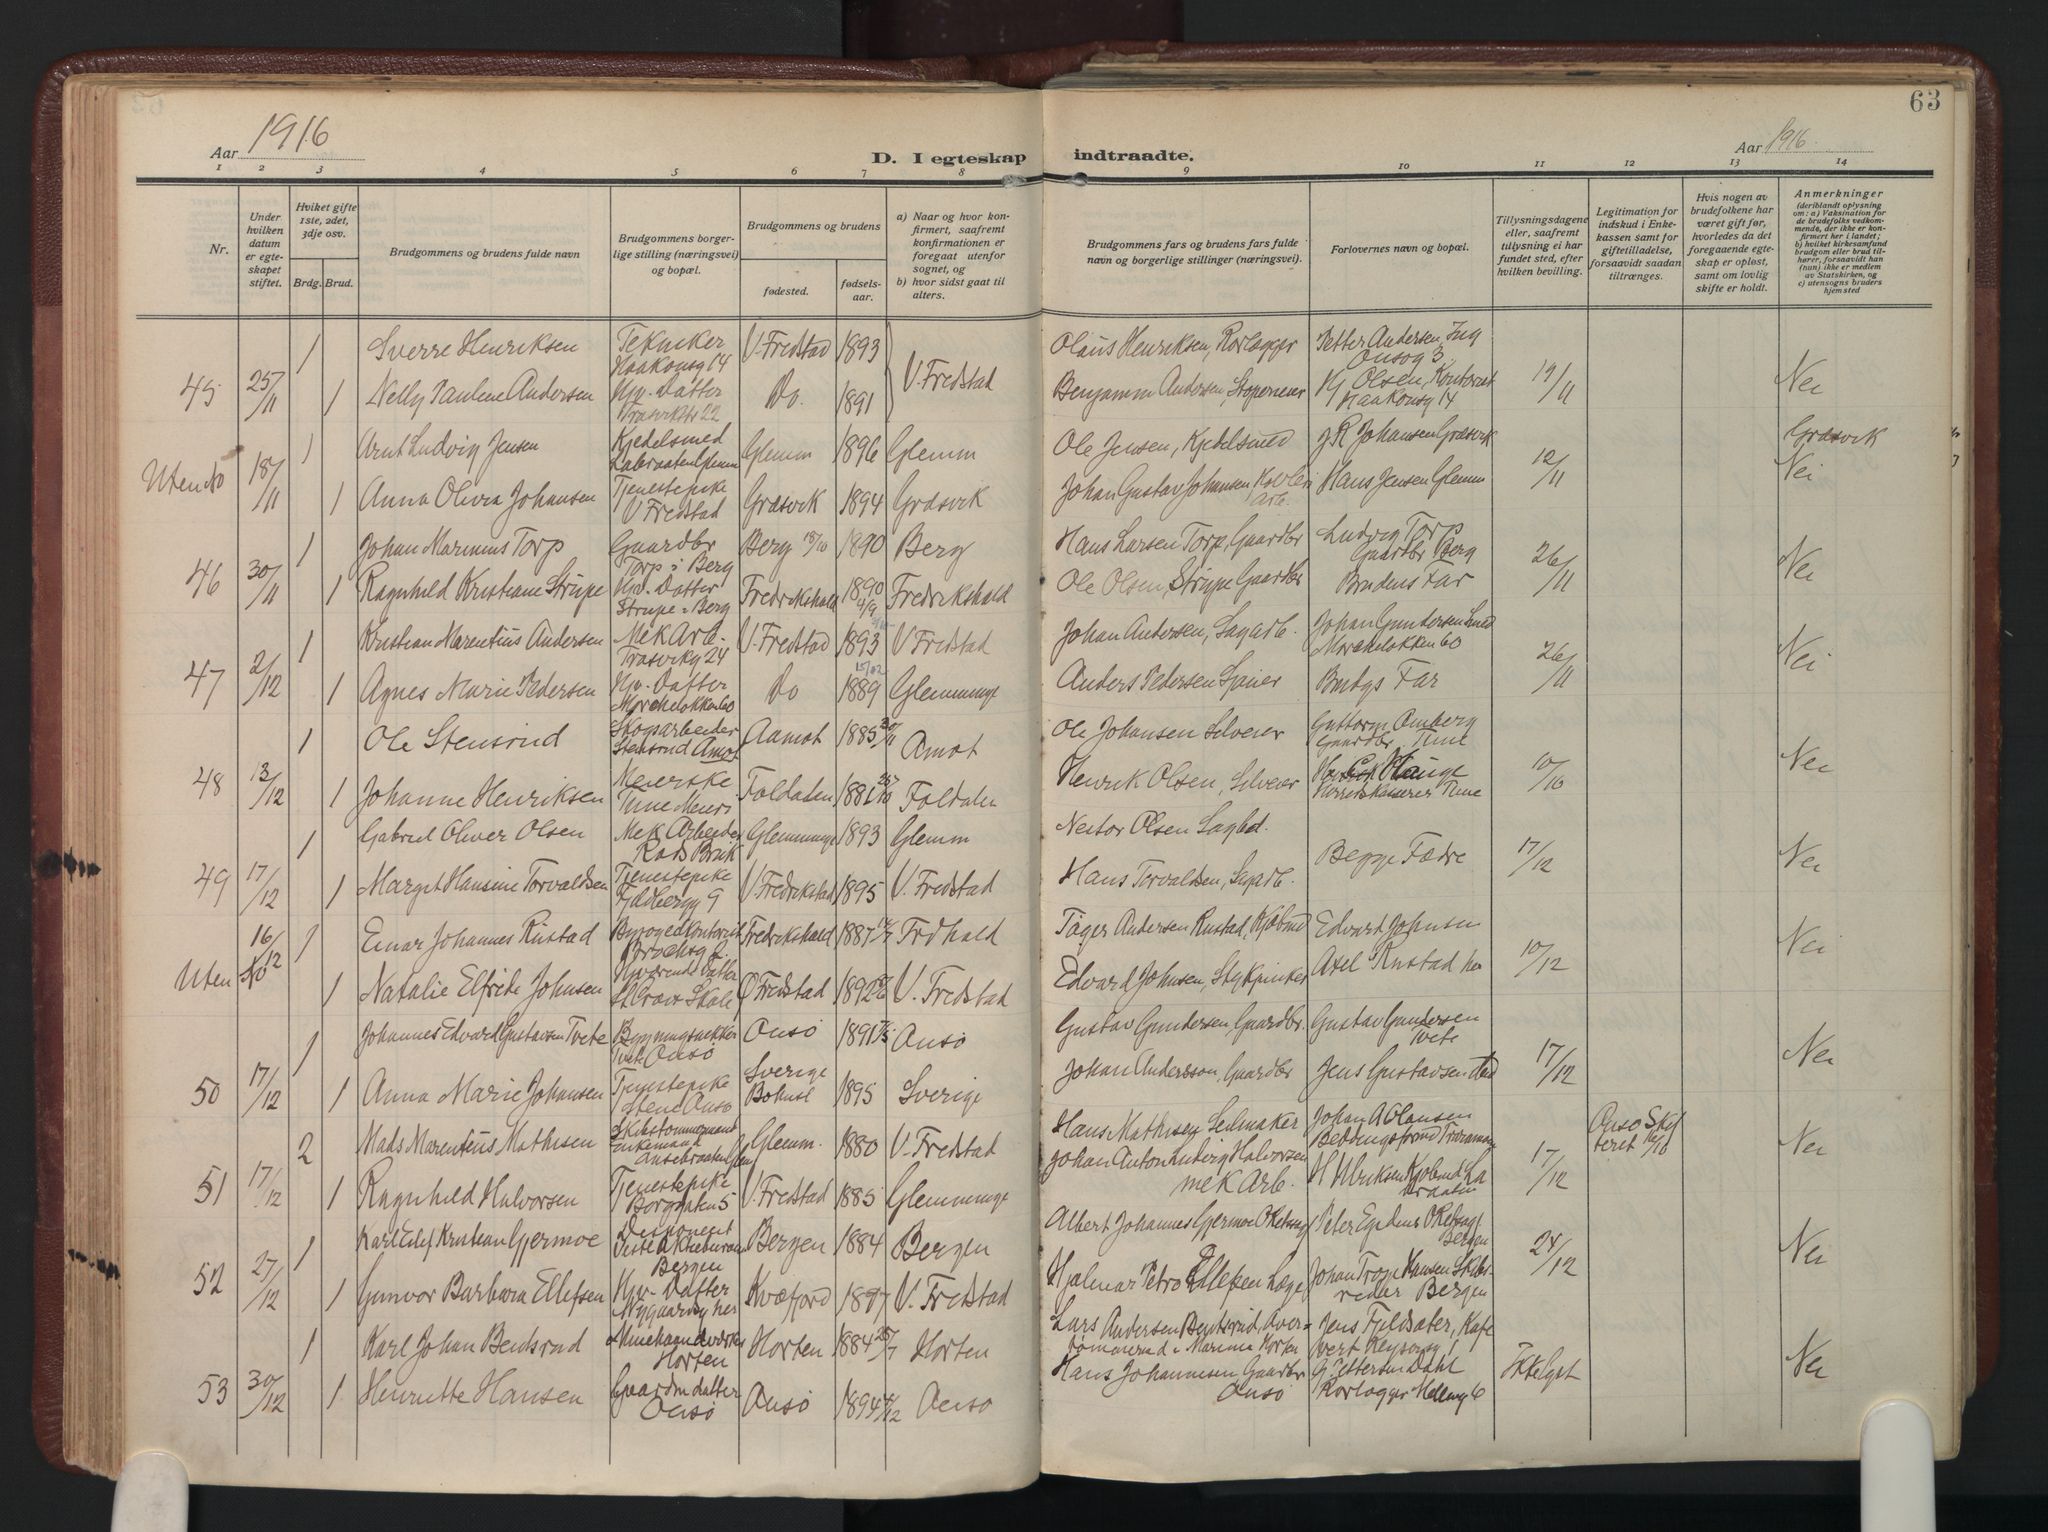 63
Aar 1916
D. I egteskap indtraadte.
Aar 1916.
1 2 3 4 5 6 7 8 9 10 11 12 13 14
Nr.
Under hvilken datum er egteskapet stiftet.
Hviket gifte 1ste, 2det, 3dje osv.
Brdg. Brud.
Brudgommens og brudens fulde navn
Brudgommens borgerlige stilling (næringsvei) og bopæl.
Brudgommens og brudens
fødested.
fødselsaar.
a) Naar og hvor konfirmert, saafremt konfirmationen er foregaat utenfor sognet, og
b) hvor sidst gaat til alters.
Brudgommens fars og brudens fars fulde navn og borgerlige stillinger (næringsvei).
Forlovernes navn og bopæl.
Tillysningsdagene eller, saafremt tillysning ei har fundet sted, efter hvilken bevilling.
Legitimation for indskud i Enkekassen samt for giftetilladelse, forsaavidt saadan tiltrænges.
Hvis nogen av brudefolkene har været gift før, hvorledes da det foregaaende egteskap er opløst, samt om lovlig skifte er holdt.
Anmerkninger (deriblandt oplysning om: a) Vaksination for de brudefolks vedkommende, der ikke er konfirmert her i landet; b) hvilket kirkesamfund brudgom eller brud tilhører, forsaavidt han (hun) ikke er medlem av Statskirken, og c) utensogns bruders hjemsted
1 Sverre Henriksen Tekniker Haakonsg 14 V. Fredstad 1893 Olaus Henriksen, Rørlægger Petter Andersen, Ing Onsøg 3.
45 25/11 1 Nelly Paulene Andersen Hjv. Datter Trosvikstr 22 Do. 1891 V. Fredstad Benjamin Andersen, Stoperieier Hj Olsen, Kontorist Haakonsg 14 19/11 Nei
1 Arnt Ludvig Jensen Kjedelsmed Labraaten Glemm Glemm 1896 Glemm Ole Jensen, Kjedelsmed J R Johansen Græsvik Græsvik
Uten No 18/11 1 Anna Olivia Johansen Tjenestepike V Fredstad Græsvik 1894 Græsvik Johan Gustav Johansen, Arb. Hans Jensen Glemm 12/11 Nei
1 Johan Marinius Torp Gaardbr Torp i Berg Berg 1890 Berg Hans Larsen Torp, Gaardbr Ludvig Torp Gaardbr Berg
46 30/11 1 Ragnhild Kristiane Strupe Hjv. Datter Strupe i Berg Fredrikshald 1890 4/9 Fredrikshald Ole Olsen, Strupe Gaardbr Brudens Far 26/11 Nei
1 Kristian Marentius Andersen Mek Arb. Trosvikg 24 V. Fredstad 1893 V Fredstad Johan Andersen, Sagarb. Johan Gundersen Smed Mørcheløkken 60
47 2/12 1 Agnes Marie Pedersen Hjv. Datter Mørcheløkken 60 Do 1889 Glemminge Anders Pedersen Far 26/11 Nei
1 Ole Stensrud Skogsarbeider Stensrud Amot Aamot 1885 Amot Ole Johansen Selveier Guttorm Gaardbr Tune
48 13/12 1 Johanne Henriksen Meierske Tune Meieri Foldalen 1881 Foldalen Henrik Olsen, Selveier Hauge Herredskasserer Tune 10/10 Nei
1 Gabriel Oliver Olsen Mek Arbeider Glemminge 1893 Glemm Nestor Olsen
49 17/12 1 Margit Hansine Torvaldsen Tjenestepike Fjeldbergg 9 V. Fredrikstad 1895 V. Fredstad Hans Torvaldsen, Sagarb. Begge Fædre 17/12 Nei
1 Einar Johannes Rustad Brochsg 2. Fredrikshald 1887 Frdhald Andersen Rustad, Edvard Johnsen
Uten No 16/12 1 Natalie Elfride Johnsen Hjværende Datter Ø Fredstad 1892 V. Fredstad Edvard Johnsen, Axel Rustad her 10/12 Nei
1 Johannes Edvard Gustavsen Tvete Tvete Onsø Onsø 1891 Onsø Gustav Gundersen, Gaardbr. Gustav Gundersen Tvete
50 17/12 1 Anna Marie Johansen Tjenestepike Onsø Sverige 1895 Sverige Johan Andersson, Gaardbr Jens Gustavsen 17/12 Nei
2 Mads Marentius Mathisen Skibstømmermand Enkemand Glemm. 1880 V. Fredstad Hans Mathisen Seilmaker Johan A Olausen Onsø Skifteret 16/10
51 17/12 1 Ragnhild Halvorsen Tjenestepike Borggaten 5 V. Fredstad 1885 Glemminge Johan Anton Ludvig Halvorsen mek Arb. 17/12 Nei
1 Karl Kristian Gjermoe Disponent Bergen Bergen 1884 Bergen Albert Johannes Gjermoe Bergen
52 27/12 1 Gunvor Barbara Ellefsen Hjv. Datter Nygaardsg her Kvæfjord 1897 V. Fredstad Hjalmar Petro Ellefsen Læge Johan Hansen Skibsreder Bergen 24/12 Nei
1 Karl Johan Bendsrud Minehaandverker Horten Horten 1884 25/7 Horten Lars Andersen Bendsrud, Overtømmermd i Marinen Horten Jens Fjeldsæter, Kafevert
53 30/12 1 Henriette Hansen Gaardm datter Onsø Onsø 1894 Onso Hans Johannesen Gaardbr Onsø G Pettersen Dahl Rørlægger Ikke lyst Nei